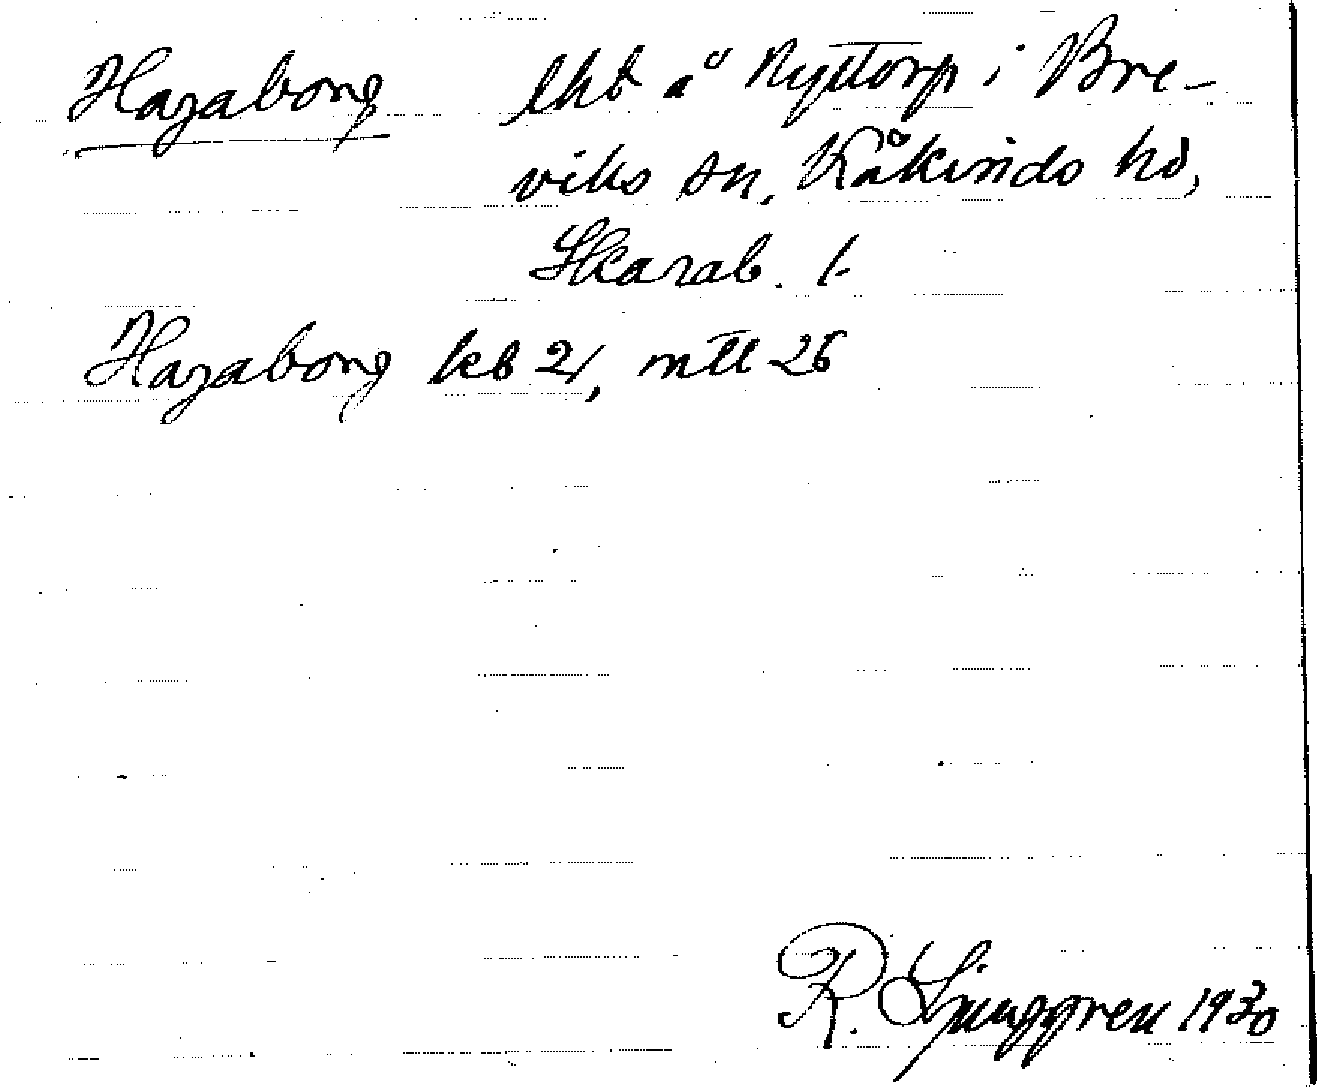 Hagabong lht å Nyttorp i Bre-
viks sn, Kåkinds hd,
Skarab. l.
Hagabong kb 21, mtl 26
R. Ljunggren 1930